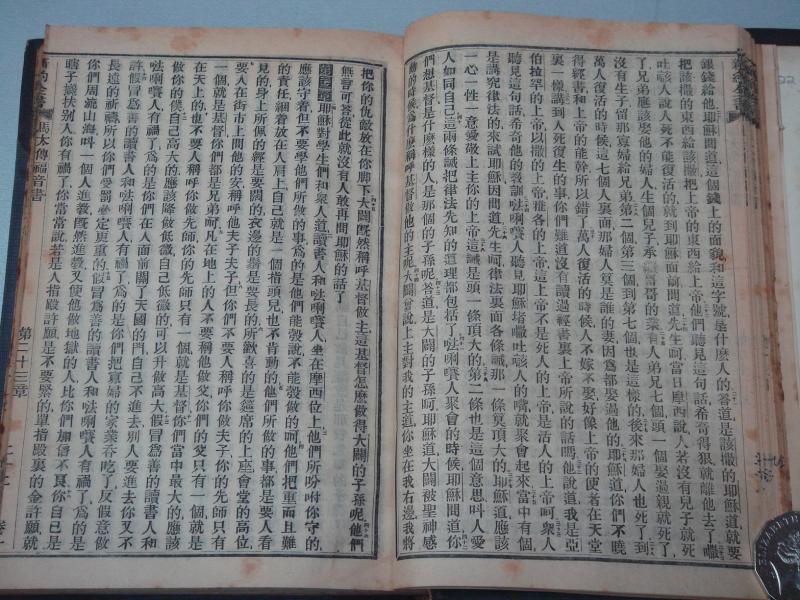 銀錢給他耶穌問道這個錢上的面貌和這字號是什麼人的答道是該撒的耶穌道就要
把該撒的東西給該撒把上帝的東西給上帝他們聽見這句話希奇得狠就離他去了
吐咳人說人死不能復活的就到耶穌面前問道先生呵當日摩西說人若沒有兒子就死
了兄弟應該娶他的婦人生個兒子承哥哥的業有人弟兄七個頭一個娶過親就死了
沒有生子留那寡婦給兄弟第二個第三個到第七個也是這樣的後來那婦人也死了到
萬人復活的時候這七個人裏面那婦人莫是誰的妻因為都娶過他的耶穌道你們不曉
得經書和上帝的能幹所以錯了萬人復活的時候人不嫁不娶好像上帝的使者在天堂
裏一樣講到人死復生的事你們難道沒有讀過經書裏上帝所說的話嗎他說道我是亞
伯拉罕的上帝以撒的上帝雅各的上帝這上帝不是死人的上帝是活人的上帝呵眾人
聽見這句話希奇他的教訓㗙唎㘔人聽見耶穌堵吐咳人的嘴就聚會起來當中有個
是講究律法的來試耶穌因問道先生呵律法裏面各條誡那一條莫頂大的耶穌道應該
一心一性一意愛敬上主你的上帝這誡是頭一條頂大的第二條也是這個意思叫人愛
人如同自己這兩條誡把律法先知的道理都包括了㗙唎㘔人聚會的時候耶穌問道你
們想基督是什麼樣的人是那個的子孫呢答道是大闢的子孫呵耶穌道大闢被聖神感
動的時候為什麼稱呼基督做他的主呢大闢會說上主對我的主道你坐在我右邊我將
把你的仇敵放在你腳下大闢既然稱呼基督做主這基督怎麼做得大闢的子孫呢他們
無言可答從此就沒有人敢再問耶穌的話了
耶穌對學生們和眾人道讀書人和㗙唎㘔人坐在摩西位上他們所吩咐你守的
應該守着但不要學他們所做的事為的是他們能彀說不能彀做的呵他們把重而且難
的責任綑着放在人肩上自己就是一個指頭兒也不肯動的他們所做的事都是要人看
見的身上所佩的經是要闊的衣邊的繐是要長的所歡喜的是筵席的上座會堂的高位
要人在街市上問他的安稱呼他夫子夫子但你們不要人稱呼你做夫子你的先師只有
一個就是基督你們都是兄弟呵凡在地上的人不要稱他做父你們的父只有一個就是
在天上的也不要人稱呼你做先師你的先師只有一個就是基督你們當中最大的應該
做你的僕自己高大的應該降做低微自己低微的可以升做高大假冒為善的讀書人和
㗙唎㘔人有禍了為的是你們在人面前關了天國的門自己不進去別人要進去你又不
許假冒為善的讀書人和㗙唎㘔人有禍了為的是你們把寡婦的家業吞吃了反假意做
長遠的祈禱所以你們受罰必定更重的假冒為善的讀書人和㗙唎㘔人有禍了為的是
你們周流山海叫一個人進教既然進教又使他做地獄的人比你們加倍不良你自己是
瞎子攙扶別人你有禍了你常常說若是人指殿許願是不要緊的單指殿裏的金許願就
新約全書
馬太傳福音書
第二十三章